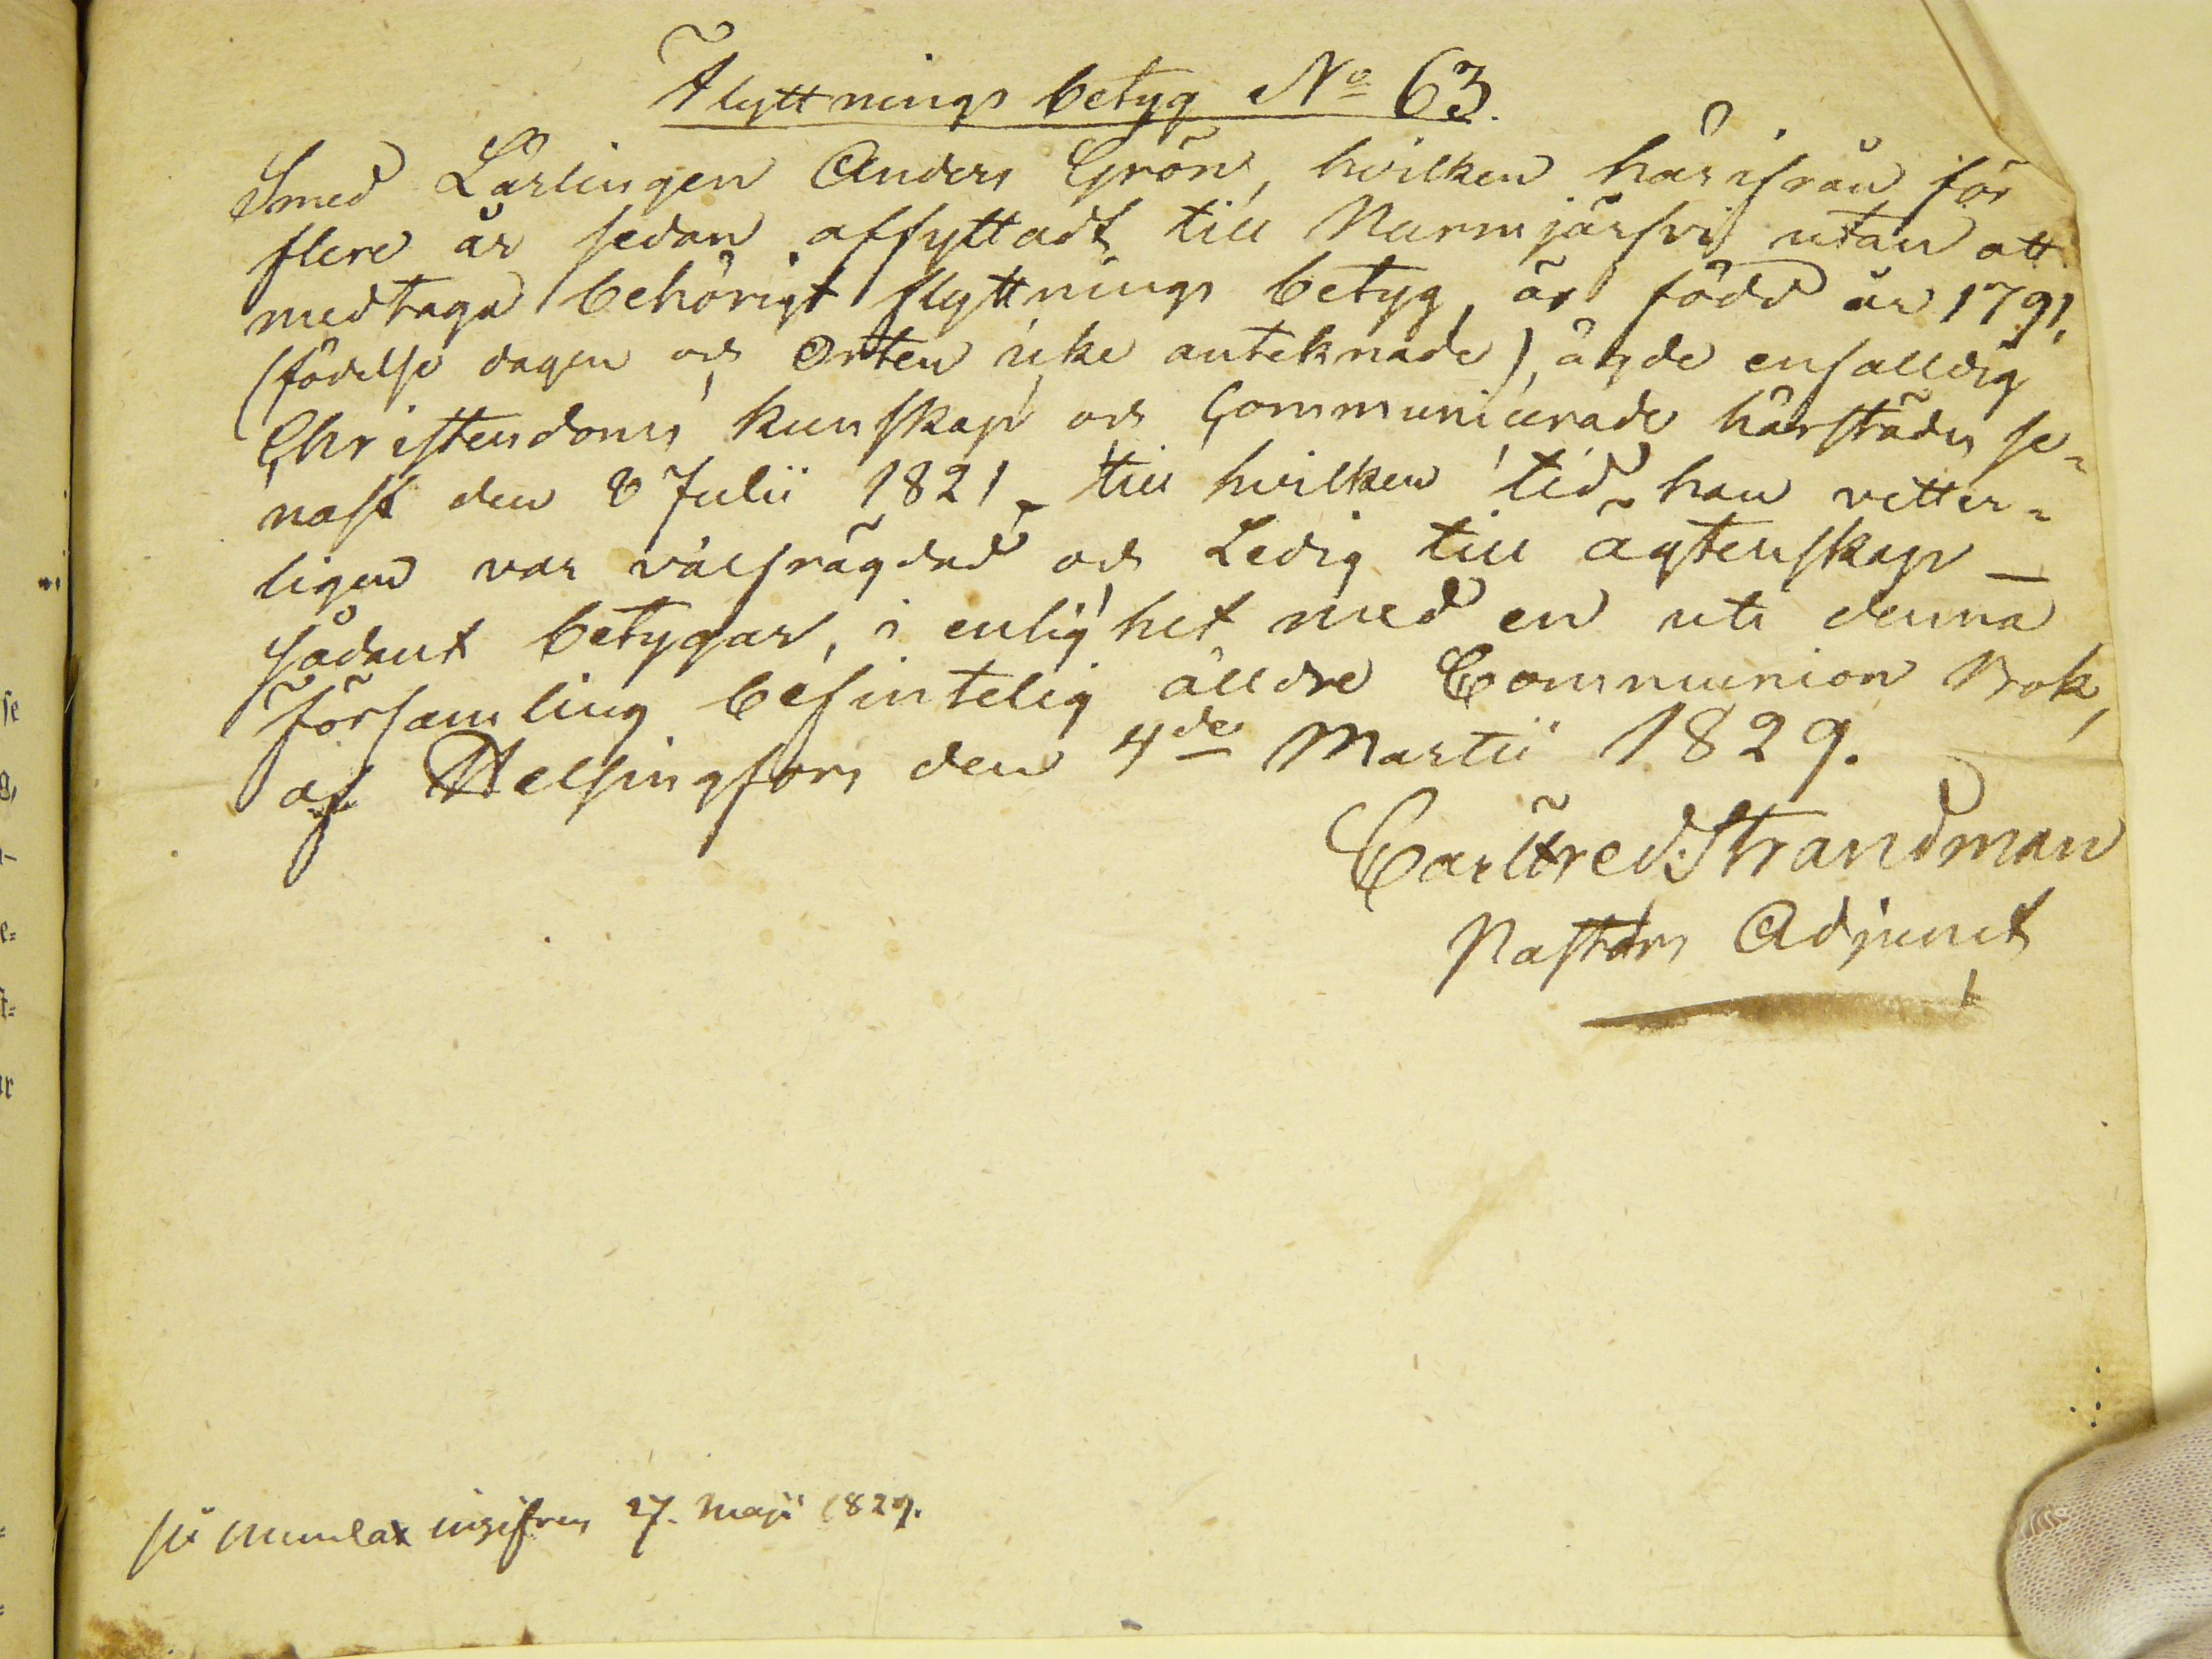 Flyttnings betyg No 63.
Smed Lärlingen Anders Grön, hvilken härifrån för
flere år sedan afflyttadt till Nurmijärfvi utan att
medtaga behörigt flyttnings betyg, är född år 1791,
(födelse dagen och Orten icke antecknade), ägde enfalldig
Christendoms kunskap och Communicerade härstädes se-
nast den 8 Julii 1821 - till hvilken tid han vitter-
ligen var välfrägdad och Ledig till ägtenskap -
sådant betygar, i enlighet med en uti denna
Församling befintelig älldre Communion Bok,
af Helsingfors den 4de Martii 1829.
Carl Fred: Strandman
Pastors Adjunct
27. Maji 1829.
se
e-